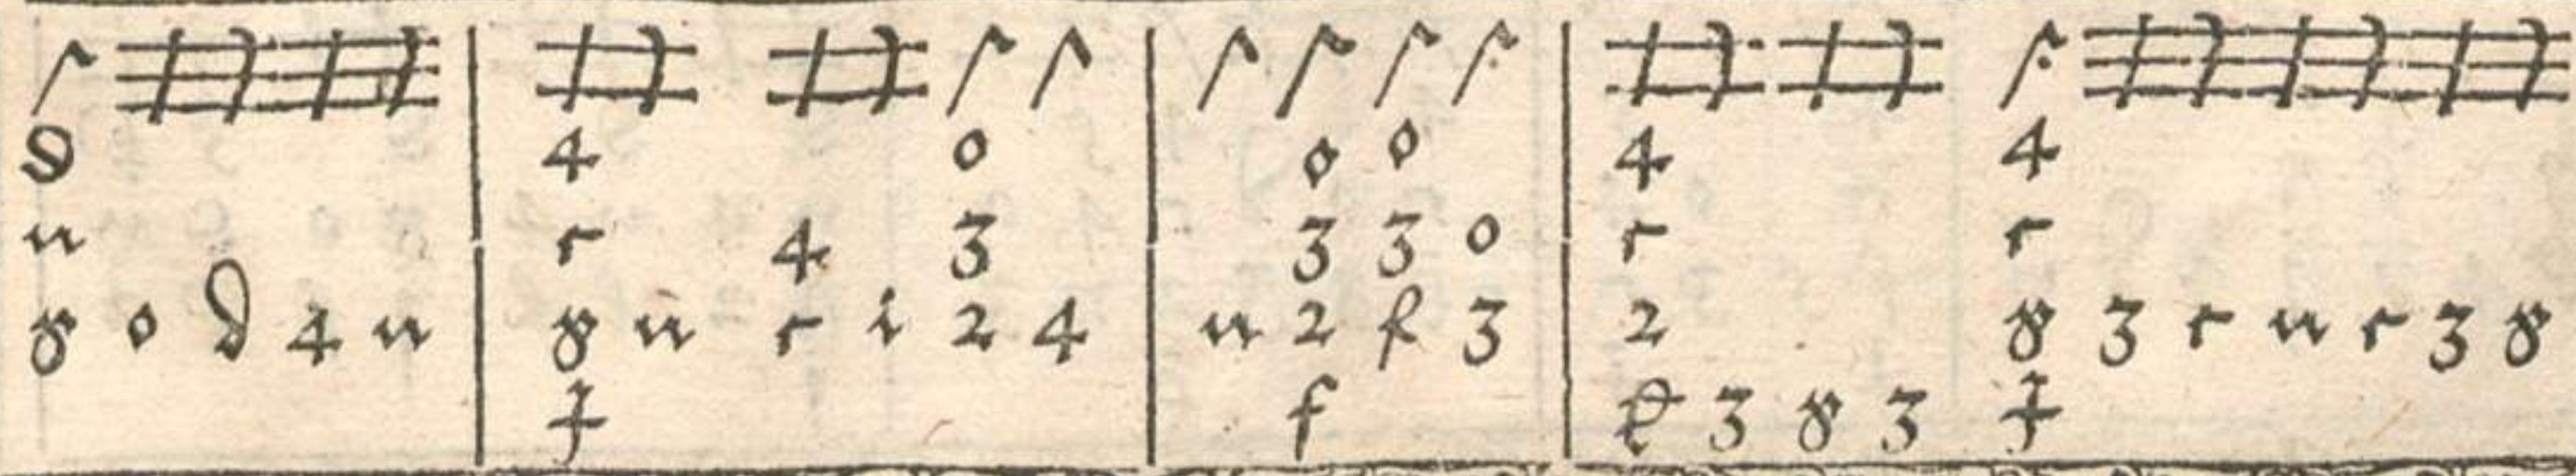 9 | 4 o | o o | 4 4
n | r 4 3 | 3 3 o | r r
8 o d 4 n | 8 n r i 2 4 | n 2 k 3 | 2 8 3 r n r 3 8
ɟ | f | 3 8 3 ɟ